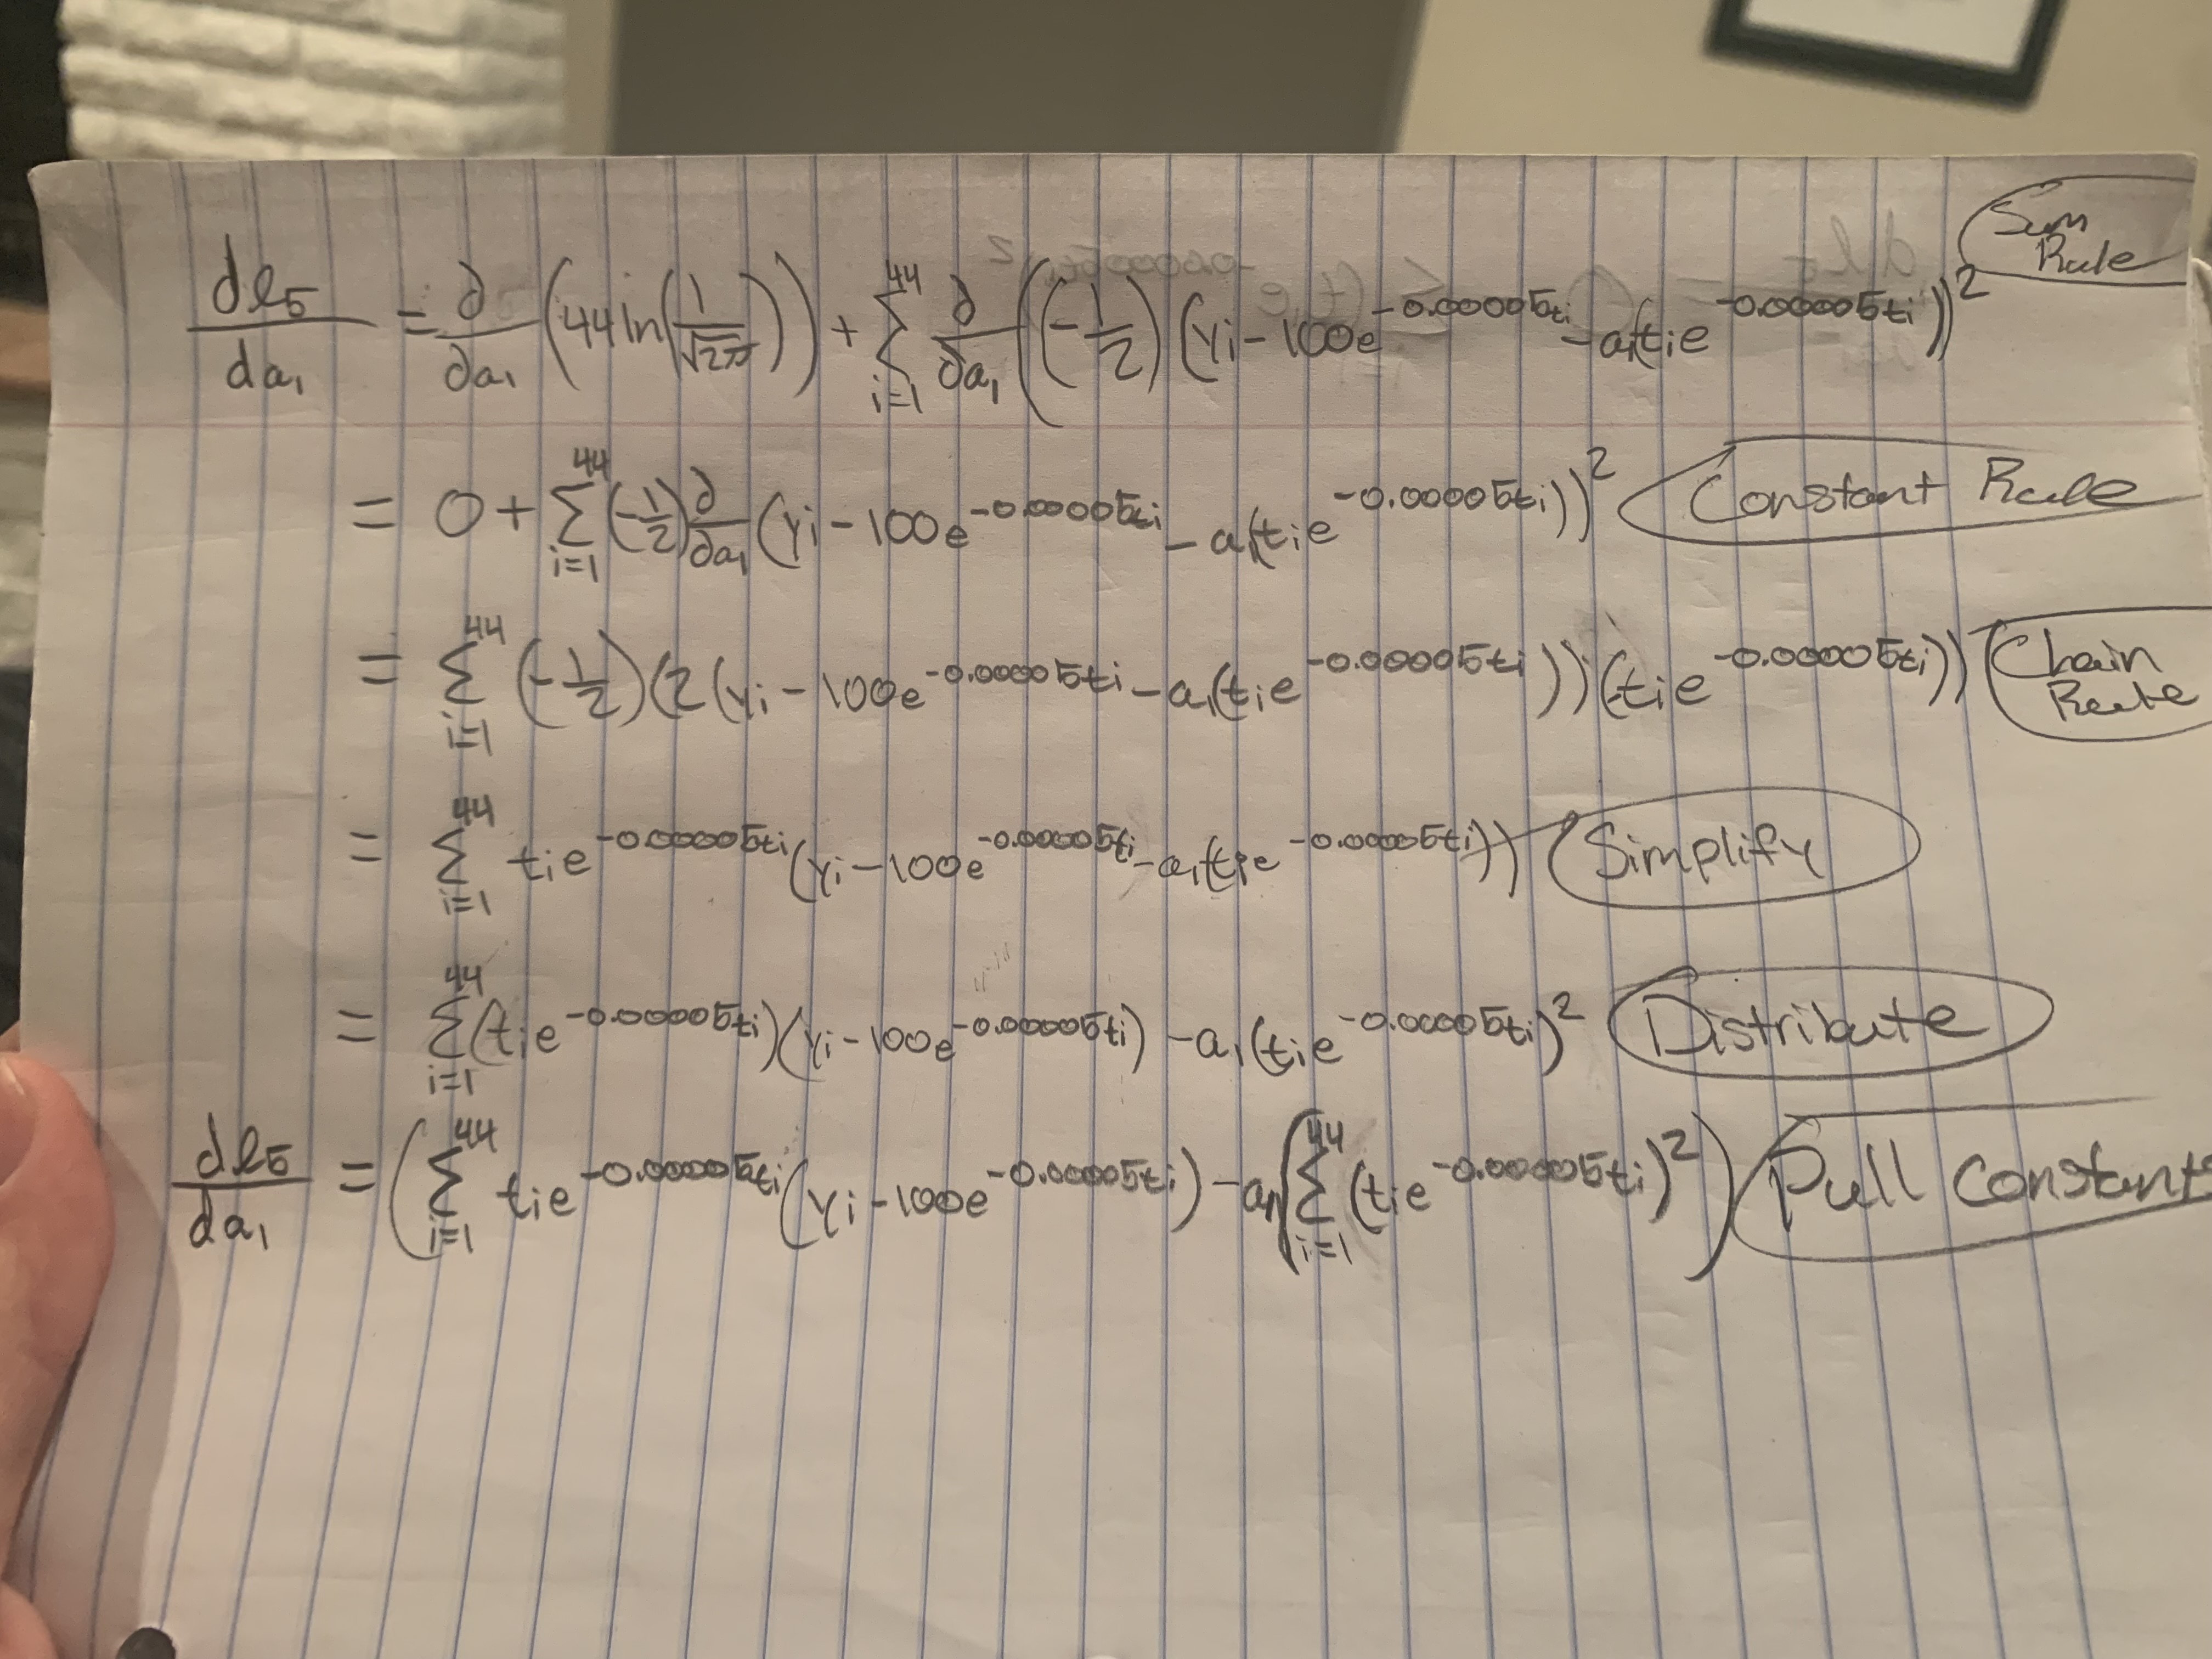 dl₅/da₁ = ∂/∂a₁ (44 ln(1/√2π)) + Σ_{i=1}^{44} ∂/∂a₁ ((-1/2)(yi - 100e^{-0.00005ti} - a₁(tie^{-0.00005ti}))² Sum Rule
= 0 + Σ_{i=1}^{44} (-1/2) ∂/∂a₁ (yi - 100e^{-0.00005ti} - a₁(tie^{-0.00005ti}))² Constant Rule
= Σ_{i=1}^{44} (-1/2)(2(yi - 100e^{-0.00005ti} - a₁(tie^{-0.00005ti}))(-tie^{-0.00005ti})) Chain Rule
= Σ_{i=1}^{44} tie^{-0.00005ti}(yi - 100e^{-0.00005ti} - a₁(tie^{-0.00005ti})) Simplify
= Σ_{i=1}^{44} (tie^{-0.00005ti})(yi - 100e^{-0.00005ti}) - a₁(tie^{-0.00005ti})² Distribute
dl₅/da₁ = (Σ_{i=1}^{44} tie^{-0.00005ti}(yi - 100e^{-0.00005ti}) - a₁(Σ_{i=1}^{44} (tie^{-0.00005ti})²) Pull Constants